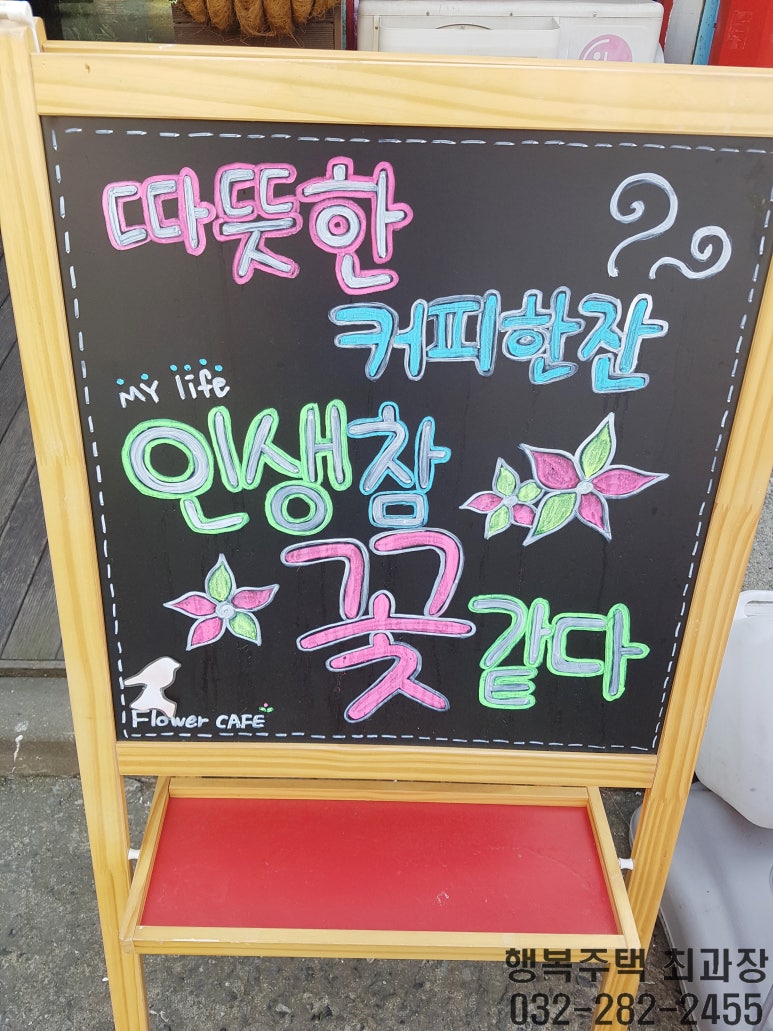 따뜻한
커피한잔
MY life
인생참
꽃같다
Flower CAFE
행복주택 최과장
032-282-2455